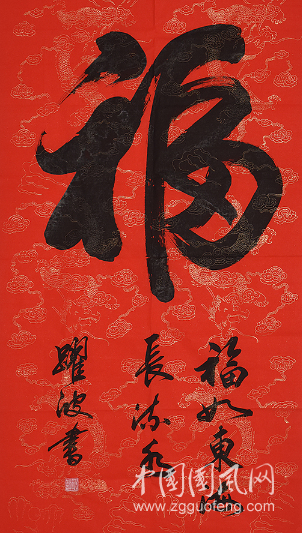 福
福如東海
長流水
躍波書
中国国风网
www.zgguofeng.com